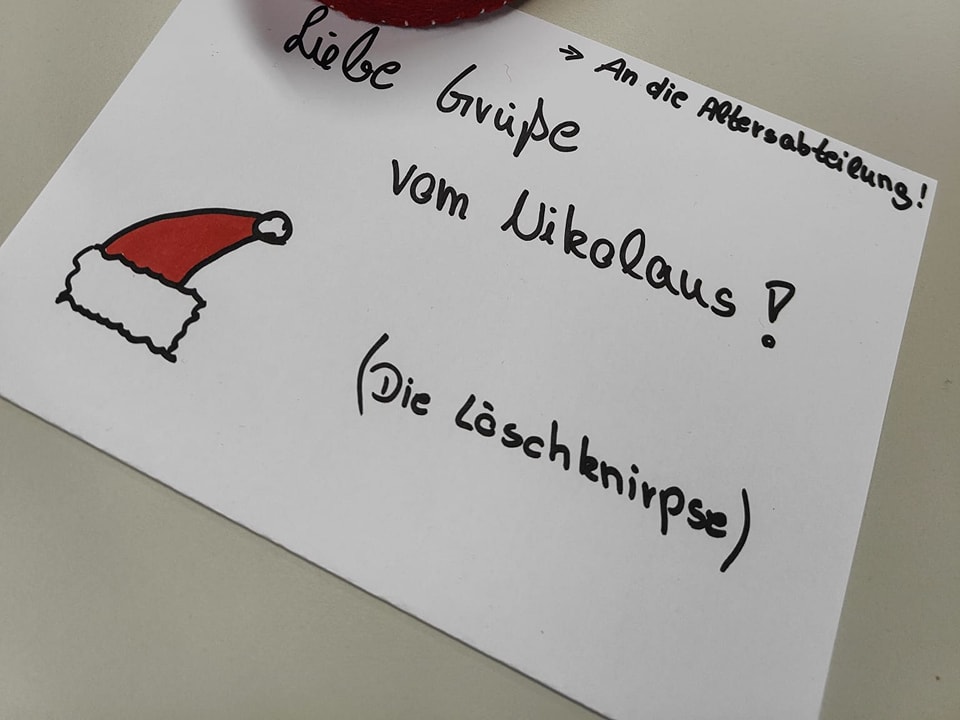 ⇒ An die Altersabteilung!
Liebe Grüße
vom Nikolaus!
(Die Löschknirpse)